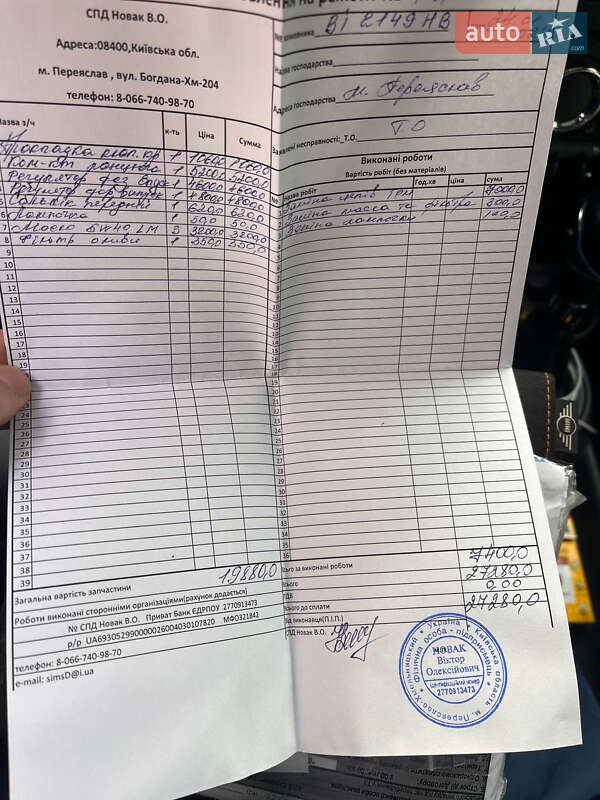 СПД Новак В.О.
Адреса:08400,Київська обл.
м. Переяслав , вул. Богдана-Хм-204
телефон: 8-066-740-98-70
ВІ 2149 НВ
auto RIA.com
Назва господарства
Адреса господарства м. Переяслав
Заявлені несправності:_Т.О. ТО
Виконані роботи
Вартість робіт (без матеріалів)
Назва з/ч к-ть Ціна Сумма
№ Назва робіт Год.хв ціна сума
Прокладка клап. кр 1
Ком-кт ланцюга 1 5200,0 5200,0
Регулятор фаз впуск 1 4600,0 4600,0
Регулятор фаз випуск 1 4800,0 4800,0
Сальник передній 1 620,0 620,0
6 Лампочка 1 50,0 50,0
7 Масло 5W40 LM 5 3200,0 3200,0
8 Фільтр оливи 1 350,0 350,0
Заміна ГРМ 7000,0
Заміна масла та фільтра 300,0
Заміна лампочки 100,0
9
10
11
12
13
14
15
16
17
18
19
24
25
26
27
28
29
30
31
32
33
34
35
36
37
38
39
Загальна вартість запчастини 19880,0
Роботи виконані сторонніми організаціями(рахунок додається)
№ СПД Новак В.О. Приват Банк ЄДРПОУ 2770913473
р/р UA693052990000026004030107820 МФО321842
телефон: 8-066-740-98-70
e-mail: simsD@i.ua
Всього за виконані роботи 7400,0
Всього 27280,0
ПДВ 0.00
Всього до сплати 27280,0
Від виконавця(П.І.П.)
СПД Новак В.О.
Україна * Київська область м. Переяслав-Хмельницький *
Фізична особа - підприємець
НОВАК
Віктор
Олексійович
Ідентифікаційний номер
2770913473
MINI